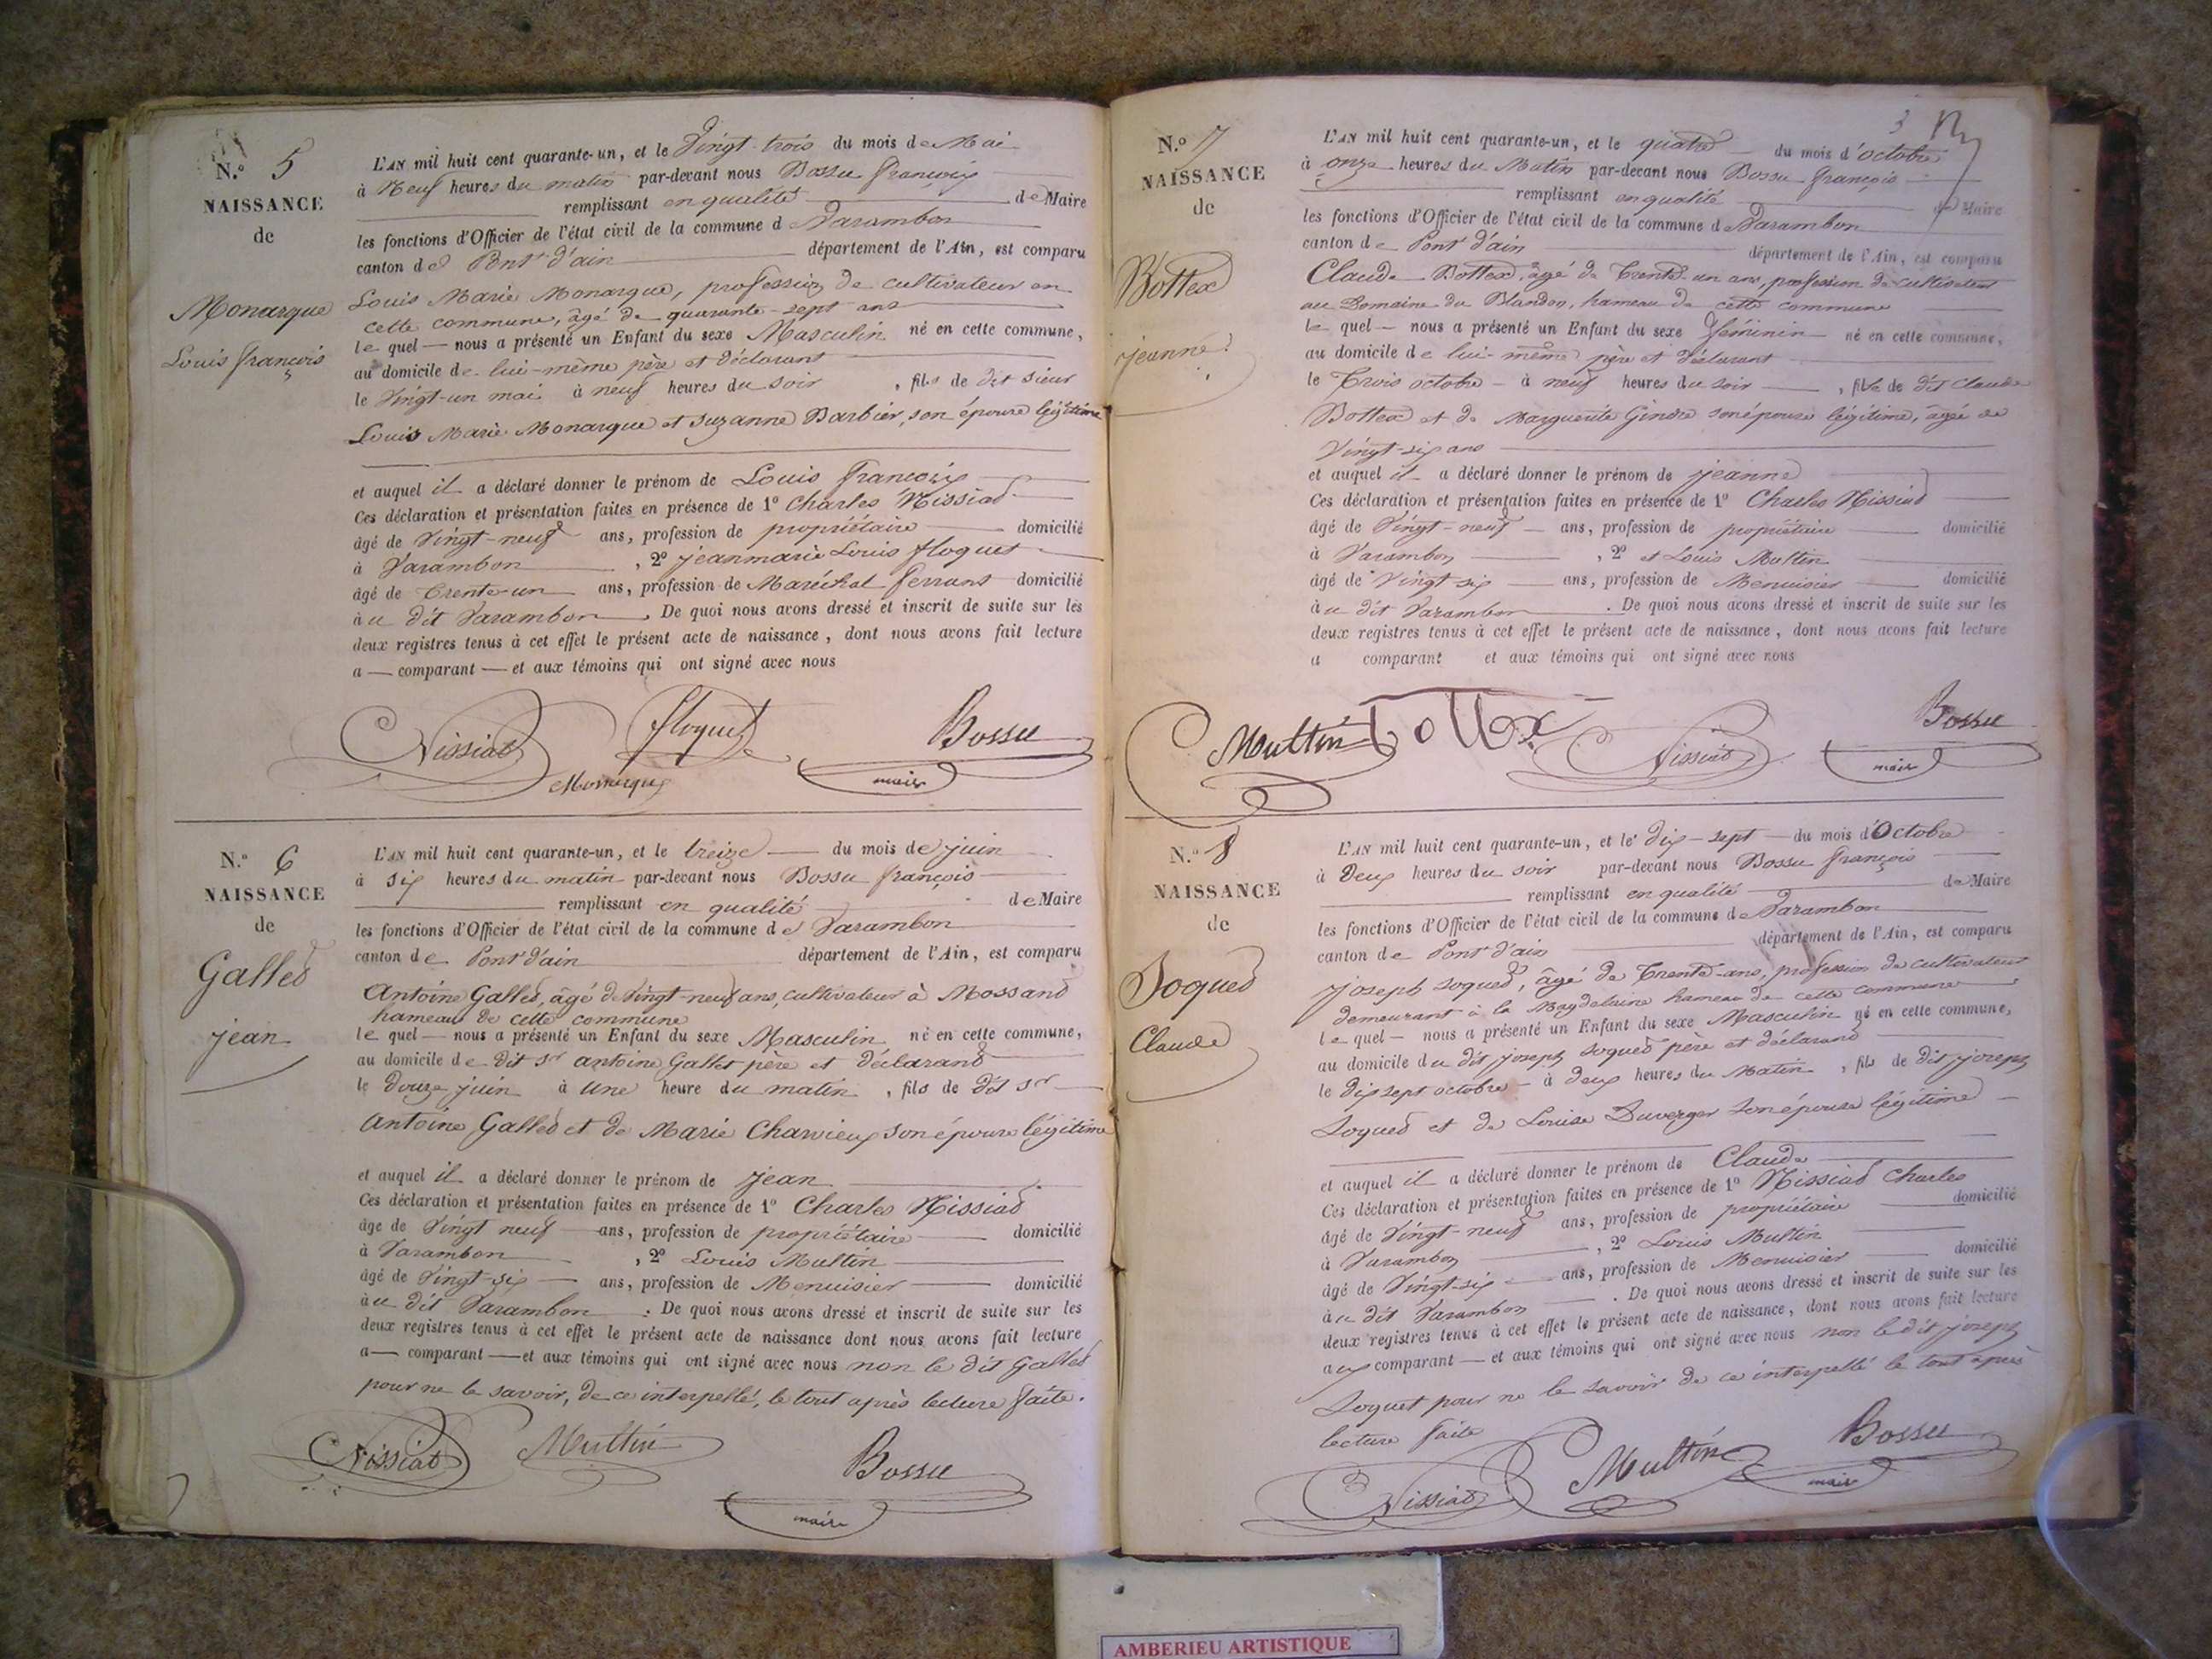 N.° 5
NAISSANCE
de
Monarque
Louis françois
L'AN mil huit cent quarante-un, et le Vingt-trois du mois de Mai
à Neuf heures du matin par-devant nous Bossu françois
remplissant en qualité de Maire
les fonctions d'Officier de l'état civil de la commune de Varambon
canton de Pont d'ain département de l'Ain, est comparu
Louis Marie Monarque, profession de cultivateur en
cette commune, âgé de quarante-sept ans
le quel — nous a présenté un Enfant du sexe Masculin né en cette commune,
au domicile de lui-même père et déclarant
le Vingt-un mai à neuf heures du soir, fils de dit sieur
Louis Marie Monarque et Suzanne Barbier, son épouse légitime
et auquel il a déclaré donner le prénom de Louis françois
Ces déclaration et présentation faites en présence de 1° Charles Nissiat
âgé de Vingt-neuf ans, profession de propriétaire domicilié
à Varambon, 2° jeanmarie Louis floquet
âgé de Trente-un ans, profession de Maréchal ferrant domicilié
à u dit Varambon. De quoi nous avons dressé et inscrit de suite sur les
deux registres tenus à cet effet le présent acte de naissance, dont nous avons fait lecture
a — comparant — et aux témoins qui ont signé avec nous
Nissiat floquet Bossu
Monarque maire
N.° 6
NAISSANCE
de
Gallet
jean
L'AN mil huit cent quarante-un, et le treize du mois de juin
à six heures du matin par-devant nous Bossu françois
remplissant en qualité de Maire
les fonctions d'Officier de l'état civil de la commune de Varambon
canton de Pont d'ain département de l'Ain, est comparu
Antoine Gallet, âgé de Vingt-neuf ans, cultivateur à Mossand
hameau de cette commune
le quel — nous a présenté un Enfant du sexe Masculin né en cette commune,
au domicile de dit Sr antoine Gallet père et déclarant
le douze juin à une heure du matin, fils de dit Sr
Antoine Gallet et de Marie son épouse légitime
et auquel il a déclaré donner le prénom de jean
Ces déclaration et présentation faites en présence de 1° Charles Nissiat
âgé de Vingt neuf ans, profession de propriétaire domicilié
à Varambon, 2° Louis Multin
âgé de Vingt-six ans, profession de Menuisier domicilié
à u dit Varambon. De quoi nous avons dressé et inscrit de suite sur les
deux registres tenus à cet effet le présent acte de naissance dont nous avons fait lecture
a — comparant — et aux témoins qui ont signé avec nous non le dit Gallet
pour ne le savoir, de ce interpellé, le tout après lecture faite.
Nissiat Multin Bossu
maire
3
N.° 7
NAISSANCE
de
Bottex
jeanne
L'AN mil huit cent quarante-un, et le quatre du mois d'octobre
à onze heures du Matin par-devant nous Bossu françois
remplissant en qualité de Maire
les fonctions d'Officier de l'état civil de la commune de Varambon
canton de Pont d'ain département de l'Ain, est comparu
Claude Bottex, âgé de Trente-un ans, profession de cultivateur
au Domaine du Blandon, hameau de cette commune
le quel — nous a présenté un Enfant du sexe féminin né en cette commune,
au domicile de lui-même père et déclarant
le Trois octobre à neuf heures du soir, fille de dit Claude
Bottex et de Marguerite Gindre son épouse légitime, âgée de
Vingt-six ans
et auquel il a déclaré donner le prénom de jeanne
Ces déclaration et présentation faites en présence de 1° Charles Nissiat
âgé de Vingt-neuf ans, profession de propriétaire domicilié
à Varambon, 2° et Louis Multin
âgé de Vingt-six ans, profession de Menuisier domicilié
à u dit Varambon. De quoi nous avons dressé et inscrit de suite sur les
deux registres tenus à cet effet le présent acte de naissance, dont nous avons fait lecture
a comparant et aux témoins qui ont signé avec nous
Multin bottex Nissiat Bossu
maire
N.° 8
NAISSANCE
de
Soquet
Claude
L'AN mil huit cent quarante-un, et le dix-sept du mois d'Octobre
à Deux heures du soir par-devant nous Bossu françois
remplissant en qualité de Maire
les fonctions d'Officier de l'état civil de la commune de Varambon
canton de Pont d'ain département de l'Ain, est comparu
joseph soquet, âgé de Trente-ans, profession de cultivateur
demeurant à la Magdelaine hameau de cette commune
le quel — nous a présenté un Enfant du sexe Masculin né en cette commune,
au domicile du dit joseph soquet père et déclarant
le dix sept octobre à deux heures du Matin, fils de dit joseph
Soquet et de Louise Duverger son épouse légitime
et auquel il a déclaré donner le prénom de Claude
Ces déclaration et présentation faites en présence de 1° Nissiat Charles
âgé de Vingt-neuf ans, profession de propriétaire domicilié
à Varambon, 2° Louis Multin
âgé de Vingt-six ans, profession de Menuisier domicilié
à u dit Varambon. De quoi nous avons dressé et inscrit de suite sur les
deux registres tenus à cet effet le présent acte de naissance, dont nous avons fait lecture
aux comparant — et aux témoins qui ont signé avec nous non le dit joseph
Soquet pour ne le savoir de ce interpellé le tout après
lecture faite
Nissiat Multin Bossu
maire
AMBERIEU ARTISTIQUE